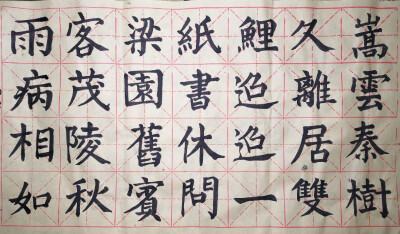 嵩雲秦樹
久離居雙
鯉迢迢一
紙書休問
梁園舊賓
客茂陵秋
雨病相如